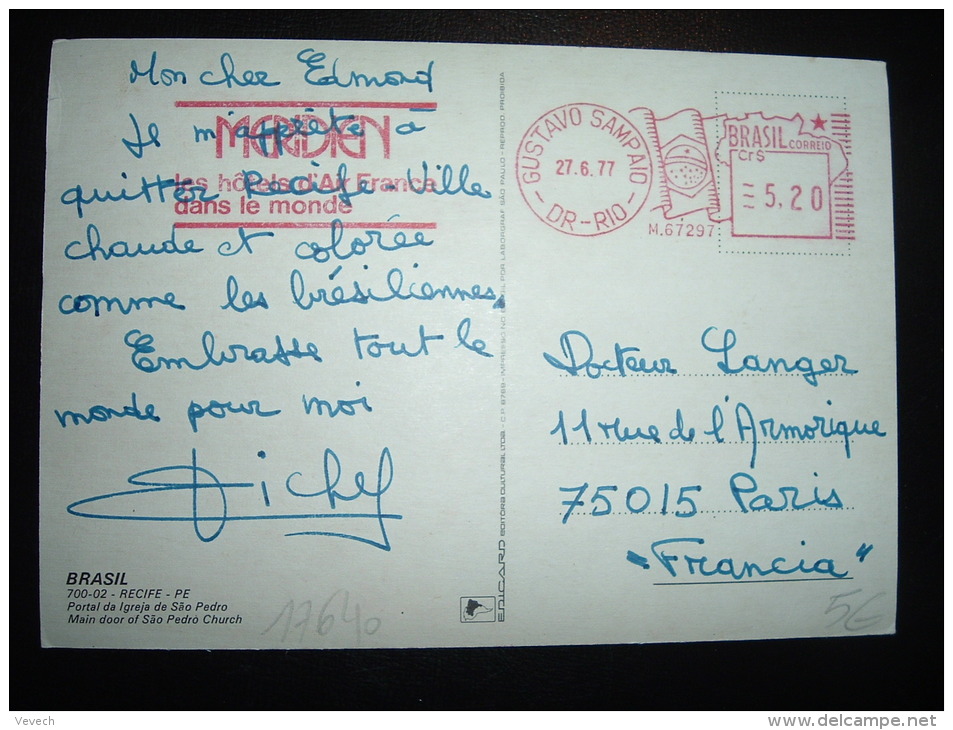 Mon cher Edmond
Je m'apprête à
quitter Recife - Ville
chaude et colorée
comme les brésiliennes.
Embrasse tout le
monde pour moi
Michel
MERIDIEN
les hôtels d'Air France
dans le monde
BRASIL
700-02 - RECIFE - PE
Portal da Igreja de São Pedro
Main door of São Pedro Church
17640
EDICARD EDITÔRA CULTURAL LTDA - C.P. 8789 - IMPRESSO NO BRASIL POR LABORGRAF SÃO PAULO - REPROD. PROIBIDA
GUSTAVO SAMPAIO
27.6.77
- DR-RIO -
M.67297
BRASIL CORREIO
Cr$
5,20
Docteur Langer
11 rue de l'Armorique
75015 Paris
"Francia"
5€
Vevech
www.delcampe.net